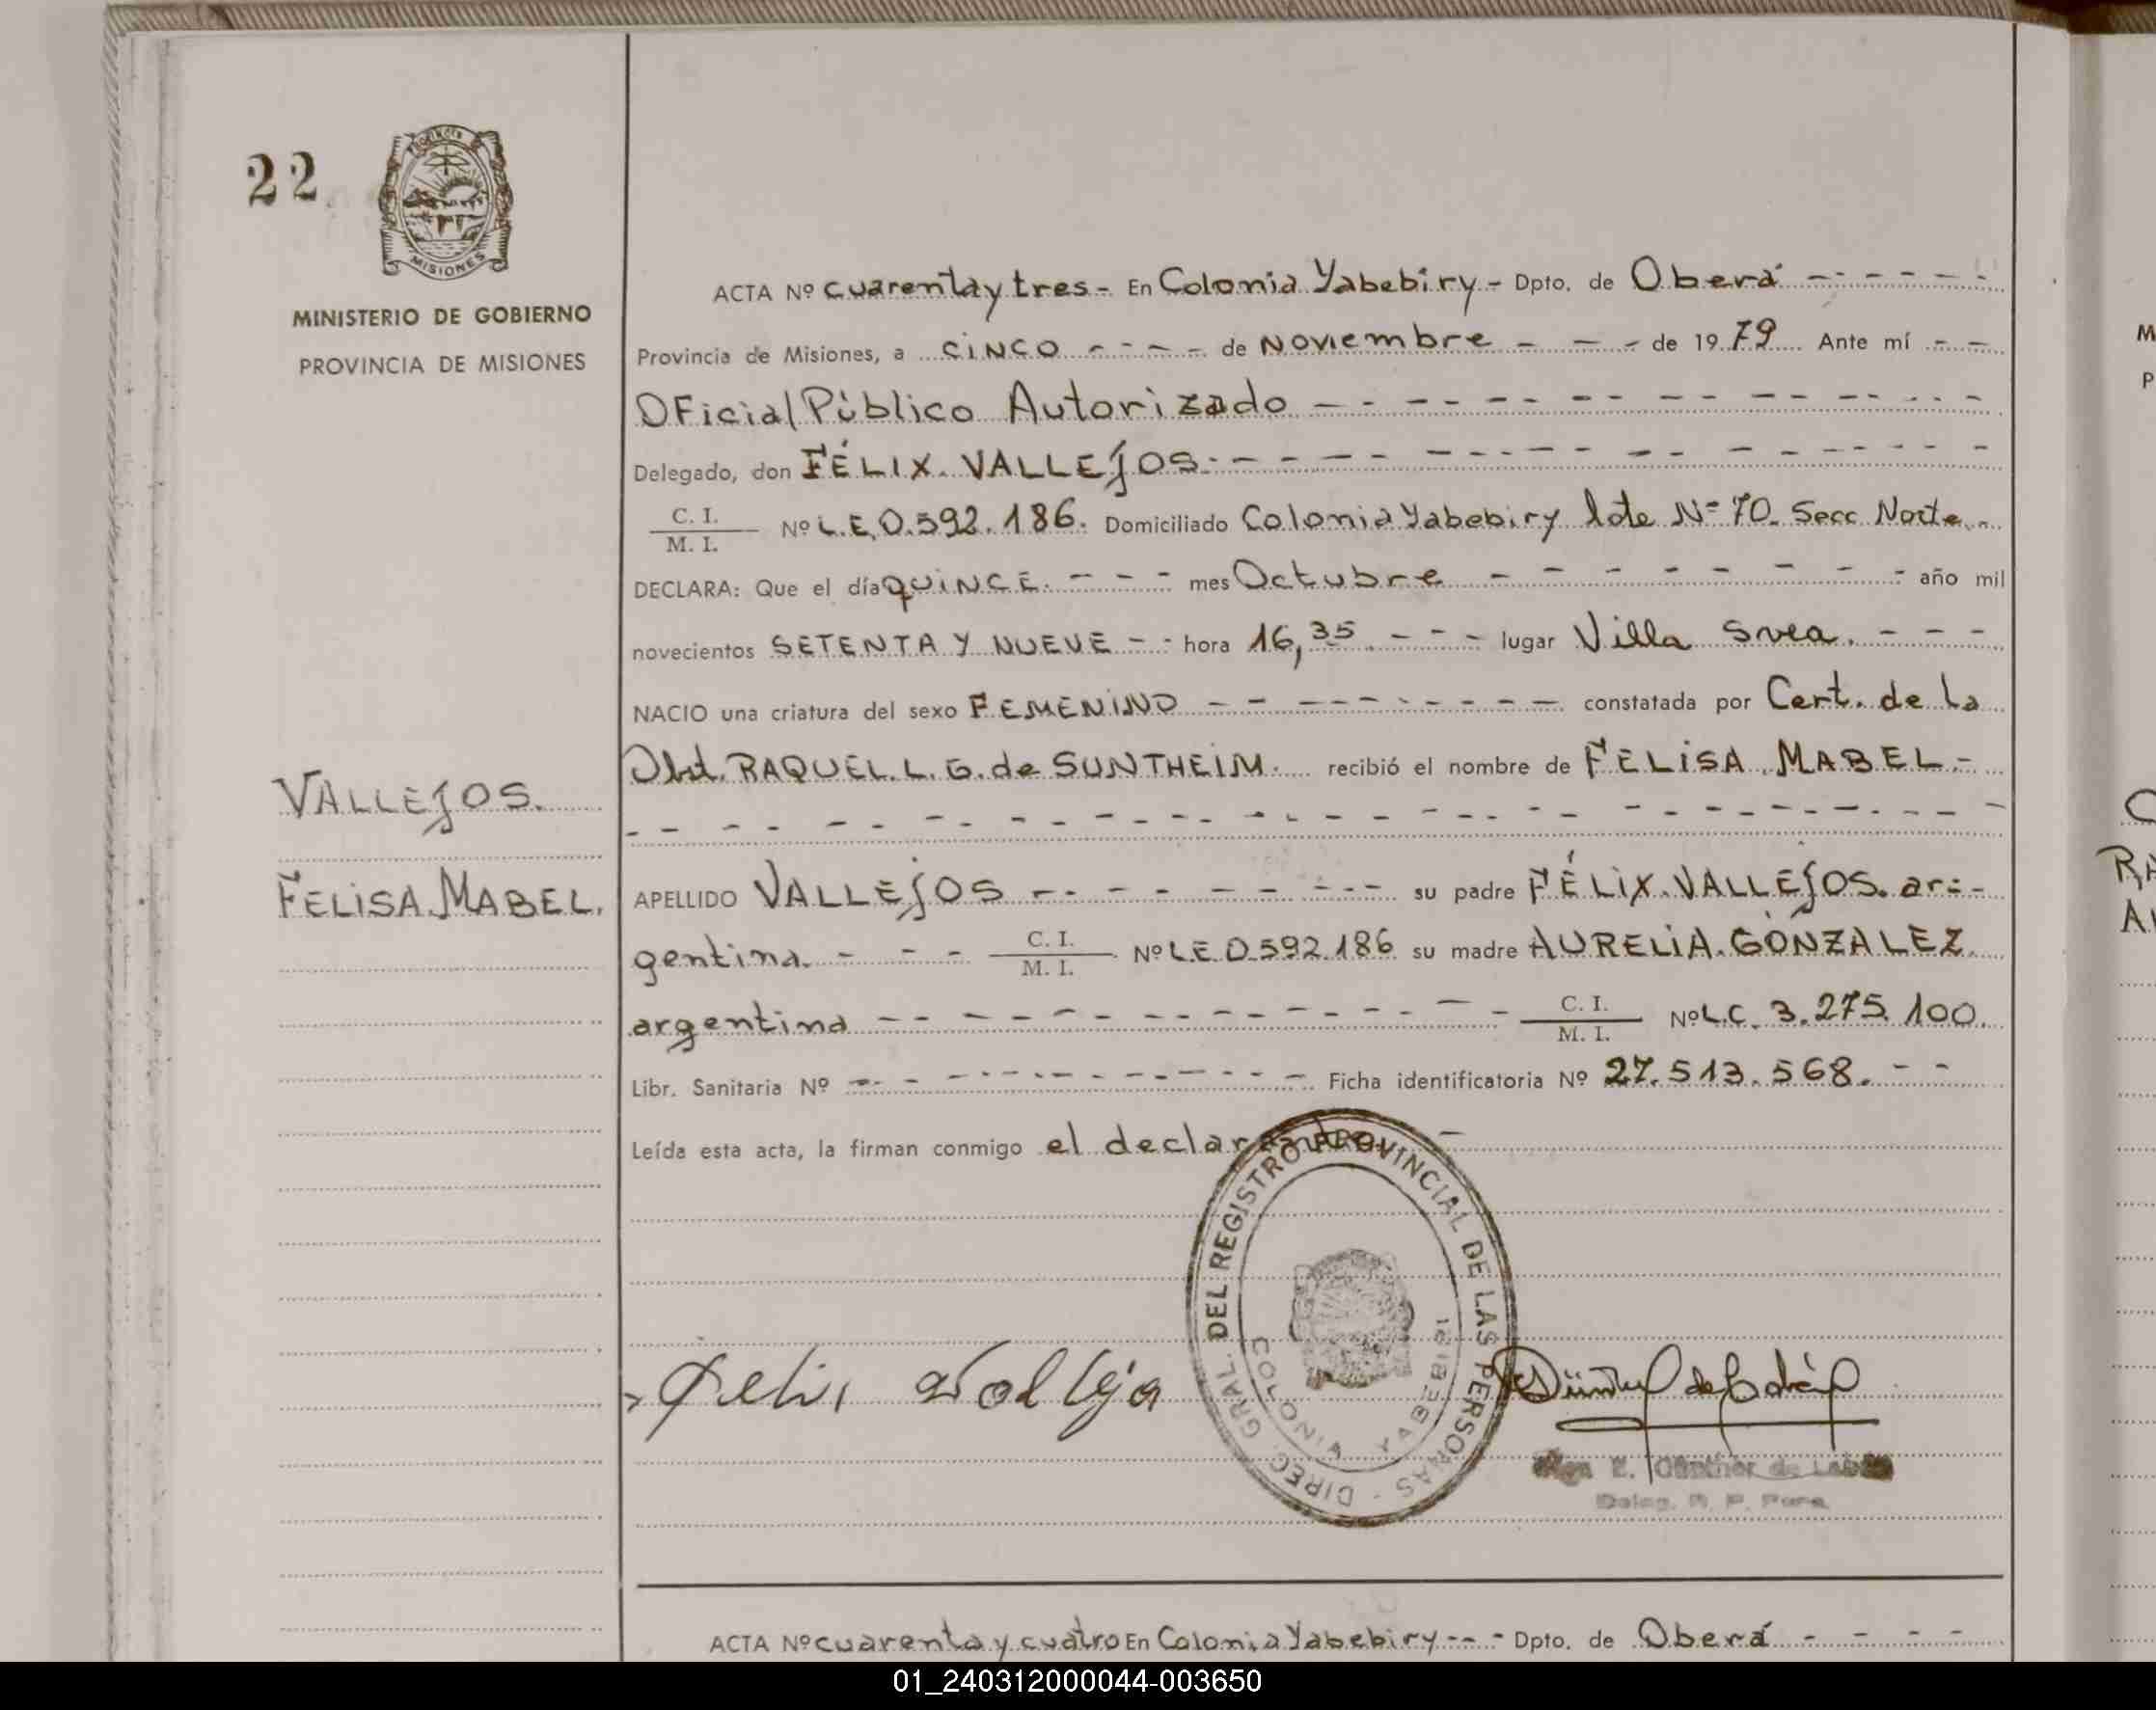 22
MISIONES
MINISTERIO DE GOBIERNO
PROVINCIA DE MISIONES
VALLEJOS.
FELISA MABEL.
ACTA Nº cuarenta y tres - En Colonia Yabebiry - Dpto. de Oberá
Provincia de Misiones, a CINCO - - - - de Noviembre - - - de 19 79 Ante mí - -
OFicial Público Autorizado
Delegado, don FÉLIX VALLEJOS.
C. I. / M. I. Nº L.E. 0.592.186. Domiciliado Colonia Yabebiry lote Nº 70. Secc Norte
DECLARA: Que el día QUINCE. - - - mes Octubre - - - año mil
novecientos SETENTA Y NUEVE - - hora 16,35 - - - lugar Villa Svea. - - -
NACIO una criatura del sexo FEMENINO - - - constatada por Cert. de la
Obst. RAQUEL. L. G. de SUNTHEIM. recibió el nombre de FELISA MABEL.-
APELLIDO VALLEJOS - - - su padre FÉLIX VALLEJOS. ar=
gentina. - - - C. I. / M. I. Nº L.E 0.592.186 su madre AURELIA. GONZALEZ.
argentina - - - C. I. / M. I. Nº L.C. 3.275.100.
Libr. Sanitaria Nº - - - Ficha identificatoria Nº 27.513.568. - -
Leída esta acta, la firman conmigo el declarante. -
DIREC. GRAL. DEL REGISTRO PROVINCIAL DE LAS PERSONAS -
COLONIA YABEBIRI
E. Günther de
Deleg. R. P. Pers.
ACTA Nº cuarenta y cuatro En Colonia Yabebiry - - - Dpto. de Oberá - - - -
01_240312000044-003650